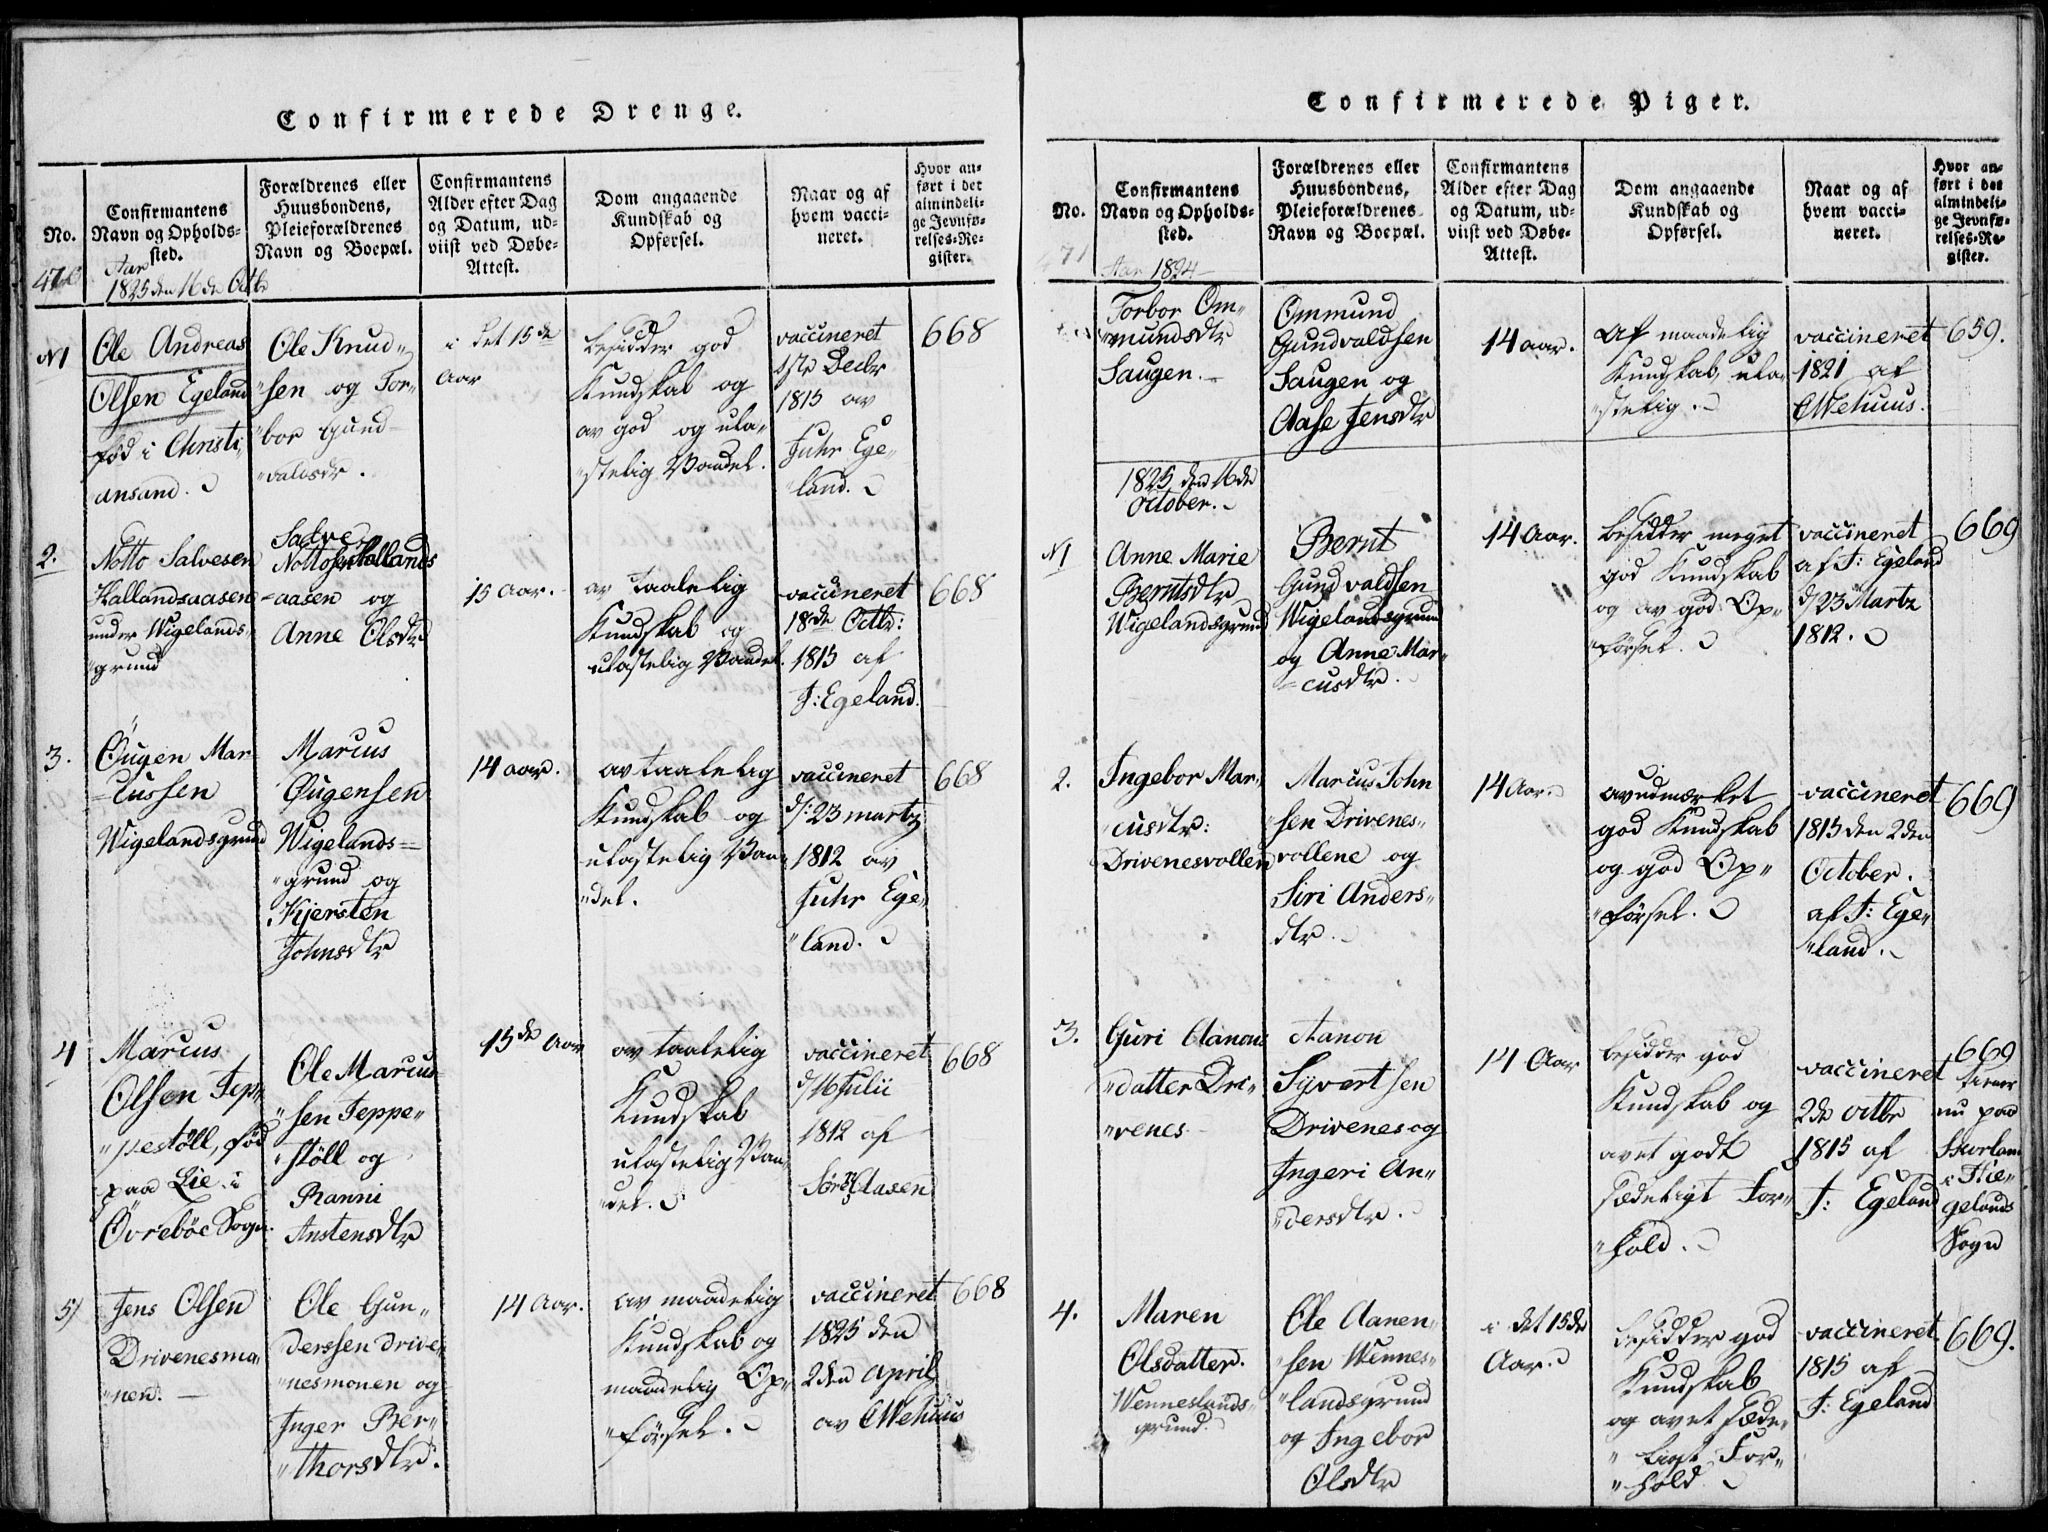 Confirmerede Drenge.
No.
Confirmantens
Navn og Opholds-
sted.
Forældrenes eller
Huusbondens,
Pleieforældrenes
Navn og Boepæl.
Confirmantens
Alder efter Dag
og Datum, ud-
viist ved Døbe-
Attest.
Dom angaaende
Kundskab og
Opførsel.
Naar og af
hvem vacci-
neret.
Hvor an-
ført i det
almindeli-
ge Jevnfø-
relses-Re-
gister.
Aar
1825 den 16de Octbr
N1
Ole Andreas
Olsen Egeland
fød i Christi
ansand.
Ole Knud„
„sen og Tor-
„bor Gund
„valdsdr.
i det 15de
Aar
besidder god
Kundskab og
av god og ula„
„stelig Vandel.
vaccineret
1ste Decbr
1815 av
Juhr Ege„
„land.
668
2.
Notto Salvesen
Hallandsaasen
under Wigelands„
„grund
Salve
Nottosen Hallands
=aasen og
Anne Olsdtr
15 Aar.
av taalelig
Kundskab og
ulastelig Vandel.
vaccineret
18de Octbr:
1815 af
J: Egeland.
668
3.
Øugen Mar
=cussen
Wigelandsgrund
Marcus
Øugensen
Wigelands=
„grund og
Kjersten
Johnsdtr
14 aar.
av taalelig
Kundskab og
ulastelig Van„
„del.
vaccineret
d/: 23 martz
1812 av
Juhr Ege„
„land.
668
4
Marcus
Olsen Jep„
„pestøll, fød
paa Lie i
Øvrebøe Sogn.
Ole Marcus
„sen Jeppe„
„støll og
Ranni
Anstensdtr
15de Aar
av taalelig
Kundskab
ulastelig Van„
„del.
vaccineret
d/16 Julii
1812 af
Sørn Aasen
668
5)
Jens Olsen
Drivenesmo„
„nen.
Ole Gun„
derssen Drive„
„nesmonen og
Inger Ber„
„thorsdtr.
14 Aar.
av maadelig
Kundskab og
maadelig Op„
„førsel.
vaccineret
1825 den
2den April
av CWehuus
668
Confirmerede Piger.
No.
Confirmantens
Navn og Opholds-
sted.
Forældrenes eller
Huusbondens,
Pleieforældrenes
Navn og Boepæl.
Confirmantens
Alder efter Dag
og Datum, ud-
viist ved Døbe-
Attest.
Dom angaaende
Kundskab og
Opførsel.
Naar og af
hvem vacci-
neret.
Hvor an-
ført i det
almindeli-
ge Jevnfø-
relses-Re-
gister.
Aar 1824
Torbor Om„
„mundsdtr
Saugen.
Ommund
Gundvaldsen
Saugen og
Aase Jensdtr
14 aar.
Af maadelig
Kundskab, ula„
„stelig.
vaccineret
1821 af
CWehuus.
659.
1825 den 16de
October.
N1
Anne Marie
Berntsdtr
Wigelandsgrund
Bernt
Gundvaldsen
Wigelandsgrund
og Anne Mar„
=cusdtr.
14 Aar.
besidder meget
god Kundskab
og av god Op„
„førsel.
vaccineret
af J: Egeland
d/23 Martz
1812.
669
2.
Ingebor Mar„
„cusdtr:
Drivenesvollen
Marcus John
„sen Drivenes„
vollene og
Siri Anders„
dtr.
14 Aar.
av udmærket
god Kundskab
og god Op„
„førsel.
vaccineret
1815 den 2den
October.
af J: Ege„
„land.
669
3.
Guri Aanon
„datter Dri„
„venes
Aanon
Syvertsen
Drivenes og
Ingeri An„
„dersdtr.
14 Aar
besidder god
Kundskab og
av et godt
sædeligt For„
„hold.
vaccineret
2de Octbr
1815 af
J: Egeland
669
tiener
nu paa
i Hæ„
gelands
Sogn
4.
Maren
Olsdatter.
Wenneslands„
grund.
Ole Aanen„
„sen Wennes„
„landsgrund
og Ingebor
Olsdtr
i det 15de
Aar.
besidder god
Kundskab
og av et sæde„
„ligt For„
„hold
vaccineret
1815 af
J: Egeland
669.